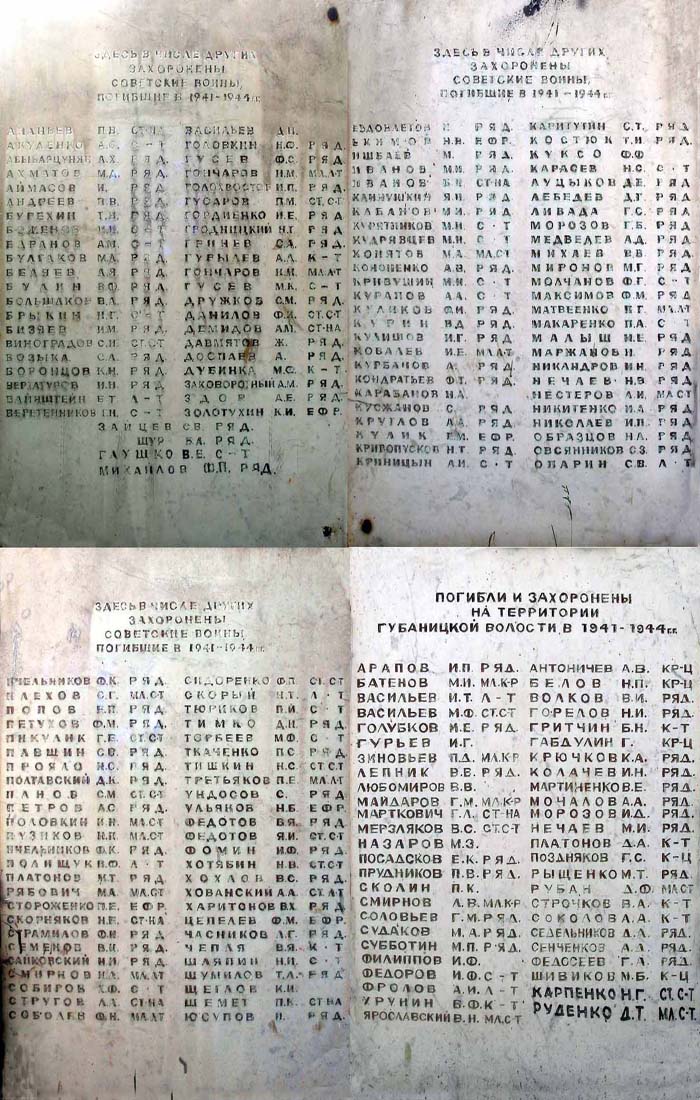 ЗДЕСЬ В ЧИСЛЕ ДРУГИХ
ЗАХОРОНЕНЫ
СОВЕТСКИЕ ВОИНЫ,
ПОГИБШИЕ В 1941-1944гг.
АНАНЬЕВ П.В. СТ-НА ВАСИЛЬЕВ
АКУЛЕНКО А.С. С-Т ГОЛОВКИН Н.Ф. РЯД.
А.Х. РЯД. ГУСЕВ Ф.С. РЯД.
АХМАТОВ М.Д. РЯД. ГОНЧАРОВ Н.М. МЛ.Л-Т
АЙМАСОВ И. РЯД. И.П. РЯД.
АНДРЕЕВ П.В. РЯД. ГУСАРОВ П.М. СТ.С-Т
БУРЕХИН Т.И. РЯД. ГОРДИЕНКО И.Е. РЯД.
БОЖЕНОВ И. С-Т ГРОДНИЦКИЙ Н.Г. РЯД.
БАРАНОВ А.М. С-Т ГРИНЕВ С.А. РЯД.
БУЛГАКОВ М.А. РЯД. ГУРЫЛЕВ А.Л. К-Т
БЕЛЯЕВ А.Я. РЯД. ГОНЧАРОВ И.М. МЛ.Л-Т
БУЛИН В.Ф. РЯД. ГУСЕВ М.К. С-Т
БОЛЬШАКОВ В.А. РЯД. ДРУЖКОВ С.М. РЯД.
БРЫКИН Н.Г. С-Т ДАНИЛОВ Ф.И. СТ.С-Т
БИЗЯЕВ И.М. РЯД. ДЕМИДОВ А.М. СТ-НА
ВИНОГРАДОВ Н.С. СТ.С-Т ДАВМЯТОВ Ж. РЯД.
ВОЗЫКА С.А. РЯД. ДОСПАЕВ А. РЯД.
ВОРОНЦОВ К.И. РЯД. ДУБИНКА М.С. К-Т
И.И. РЯД. ЗАКОВОРОТНЫЙ А.М. РЯД.
ВАЙНШТЕЙН Б.Т. Л-Т ЗДОР А.Е. РЯД.
ВЕРЕТЕННИКОВ Г.Н. С-Т ЗОЛОТУХИН К.И. ЕФР.
ЗАЙЦЕВ С.В. РЯД.
ЩУР В.А. РЯД.
ГЛУШКО В.Е. С-Т
МИХАЙЛОВ Ф.П. РЯД.
ЗДЕСЬ В ЧИСЛЕ ДРУГИХ
ЗАХОРОНЕНЫ
СОВЕТСКИЕ ВОИНЫ,
ПОГИБШИЕ В 1941-1944гг.
ЕЗДОВЛЕТОВ И. РЯД. КАРИГУТИН С.Т. РЯД.
ЕКИМОВ Н.В. ЕФР. КОСТЮК Т.И. РЯД.
ИШБАЕВ М. РЯД. КУКСО Ф.Ф.
ИВАНОВ М.И. РЯД. КАРАСЕВ Н.С. С-Т
ИВАНОВ СТ-НА ЛУЦЫКОВ Д.Е. РЯД.
КАИНУШКИН Я.И. РЯД. ЛЕБЕДЕВ Д.Г. РЯД.
КАБАНОВ М.И. РЯД. ЛИВАДА Г.С. РЯД.
КУРЯТНИКОВ М.И. С-Т МОРОЗОВ Г.Б. РЯД.
КУДРЯВЦЕВ М.И. С-Т МЕДВЕДЕВ А.Д. РЯД.
КОПЯТОВ М.А. МЛ.С-Т МИХАЕВ В.В. РЯД.
КОНОНЕНКО А.В. РЯД. МИРОНОВ М.Г. РЯД.
КРИВУШИН И.И. С-Т МОЛЧАНОВ Ф.Г. С-Т
КУРАПОВ А.А. С-Т МАКСИМОВ Ф.М. РЯД.
КУЛИКОВ Ф.И. РЯД. МАТВЕЕНКО К.Г. МЛ.Л-Т
КУРИН В.Д. РЯД. МАКАРЕНКО П.А. С-Т
КУЛИШОВ И.Г. РЯД. МАЛЫШ И.Е. РЯД.
КОВАЛЕВ И.Е. МЛ.Л-Т МАРЖАНОВ И. РЯД.
КУРБАНОВ А. РЯД. НИКАНДРОВ И.Н. РЯД.
КОНДРАТЬЕВ Ф.Т. РЯД. НЕЧАЕВ Н.З. РЯД.
КАРАБАНОВ Н.А. НЕСТЕРОВ Л.И. МЛ.С-Т
КУСЖАНОВ С. РЯД. НИКИТЕНКО И.А. РЯД.
КРУГЛОВ А.А. РЯД. НИКОЛАЕВ И.П. РЯД.
КУЛИК Г.М. ЕФР. ОБРАЗЦОВ Н.А. РЯД.
КРИВОПУСКОВ Н.Т. РЯД. ОВСЯННИКОВ С.З. РЯД.
КРИНИЦЫН А.И. С-Т ОПАРИН С.В. Л-Т
ЗДЕСЬ В ЧИСЛЕ ДРУГИХ
ЗАХОРОНЕНЫ
СОВЕТСКИЕ ВОИНЫ,
ПОГИБШИЕ В 1941-1944гг.
ПЧЕЛЬНИКОВ Ф.К. РЯД. СИДОРЕНКО Ф.П. СТ.С-Т
ПЛЕХОВ С.Г. МЛ.С-Т СКОРЫЙ Н.Т. Л-Т
ПОПОВ Н.П. РЯД. ТЮРИКОВ П.И. С-Т
ПЕТУХОВ Ф.М. РЯД. ТИМКО Д.Н. РЯД.
ПИКУЛИК Г.Е. СТ.С-Т ТОРБЕЕВ М.Ф. С-Т
ПАВШИН С.В. РЯД. ТКАЧЕНКО П.С. РЯД.
ПРОЯЛО Н.С. РЯД. ТИШКИН Н.С. СТ.С-Т
ПОЛТАВСКИЙ Д.К. РЯД. ТРЕТЬЯКОВ П.Е. МЛ.Л-Т
ПАНОВ С.М. СТ.С-Т УНДОСОВ С. РЯД.
ПЕТРОВ А.С. РЯД. УЛЬЯКОВ Н.Б. ЕФР.
ПОЛОВКИН И.Н. МЛ.С-Т ФЕДОТОВ В.Я. РЯД.
ПУЗИКОВ Н.П. МЛ.С-Т ФЕДОТОВ Я.И. СТ.С-Т
ПЧЕЛЬНИКОВ Ф. РЯД. ФОМИН И.Ф. РЯД.
ПОЛИЩУК В.Ф. Л-Т ХОТЯБИН Н.В. СТ.С-Т
ПЛАТОНОВ М.Т. РЯД. ХОХЛОВ В.С. РЯД.
РЯБОВИЧ М.А. МЛ.С-Т ХОВАНСКИЙ А.А. СТ.Л-Т
СТОРОЖЕНКО П.Е. ЕФР. ХАРИТОНОВ В.Х. РЯД.
СКОРНЯКОВ Н.Е. СТ-НА ЦЕПЕЛЕВ Ф.М. ЕФР.
СТРАМИЛОВ Ф.И. РЯД. ЧАСНИКОВ Л.Г. РЯД.
СЕМЕНОВ В.И. РЯД. ЧЕПЛЯ В.Я. К-Т
САПКОВСКИЙ И.И. РЯД. ШЛЯПИН Н.П. С-Т
СМИРНОВ И.Д. МЛ.С-Т ШУМИЛОВ Т.А. РЯД.
СОБИРОВ Х.Ф. С-Т ЩЕГЛОВ К.И.
СТРУГОВ Л.А. СТ-НА ШЕМЕТ П.К. СТ-НА
СОБОЛЕВ Ф.Н. МЛ.Л-Т ЮСУПОВ И. РЯД.
ПОГИБЛИ И ЗАХОРОНЕНЫ
НА ТЕРРИТОРИИ
ГУБАНИЦКОЙ ВОЛОСТИ, В 1941-1944гг.
АРАПОВ И.П. РЯД. АНТОНИЧЕВ А.В. КР-Ц
БАТЕНОВ М.И. МЛ.К-Р БЕЛОВ Н.П. КР-Ц
ВАСИЛЬЕВ И.Т. Л-Т ВОЛКОВ В.И. РЯД.
ВАСИЛЬЕВ М.Ф. СТ.С-Т ГОРЕЛОВ Н.И. РЯД.
ГОЛУБКОВ И.Е. РЯД. ГРИТЧИН Б.Н. К-Т
ГУРЬЕВ И.Г. ГАБДУЛИН Г. КР-Ц
ЗИНОВЬЕВ П.Д. МЛ.К-Р КРЮЧКОВ К.А. РЯД.
ЛЕПНИК В.В. РЯД. КОЛАЧЕВ И.Н. РЯД.
ЛЮБОМИРОВ В.В. МАРТИНЕНКО В.Е. РЯД.
МАЙДАРОВ Г.М. МЛ.К-Р МОЧАЛОВ А.А. РЯД.
МАРТКОВИЧ Г.Л. СТ-НА МОРОЗОВ И.Д. РЯД.
МЕРЗЛЯКОВ В.С. СТ.С-Т НЕЧАЕВ М.И. РЯД.
НАЗАРОВ М.З. ПЛАТОНОВ Д.А. К-Т
ПОСАДСКОВ Е.К. РЯД. ПОЗДНЯКОВ Г.С. К-Ц
ПРУДНИКОВ П.В. РЯД. РЫЩЕНКО М.Т. РЯД.
СКОЛИН П.К. РУБАН Д.Ф. МЛ.С-Т
СМИРНОВ Л.В. МЛ.К-Р СТРОЧКОВ В.А. К-Т
СОЛОВЬЕВ Г.М. РЯД. СОКОЛОВ А.А. К-Т
СУДАКОВ М.А. РЯД. СЕДЕЛЬНИКОВ Д.А. РЯД.
СУББОТИН М.П. РЯД. СЕНЧЕНКОВ А.А. РЯД.
ФИЛИППОВ И.Ф. ФЕДОСЕЕВ Г.А. РЯД.
ФЕДОРОВ И.Ф. С-Т ШИВИКОВ М.Б. К-Ц
ФРОЛОВ А.И. Л-Т КАРПЕНКО Н.Г. СТ.С-Т
УРУНИН В.Ф. К-Т РУДЕНКО Д.Т. МЛ.С-Т.
ЯРОСЛАВСКИЙ В.Н. МЛ.С-Т